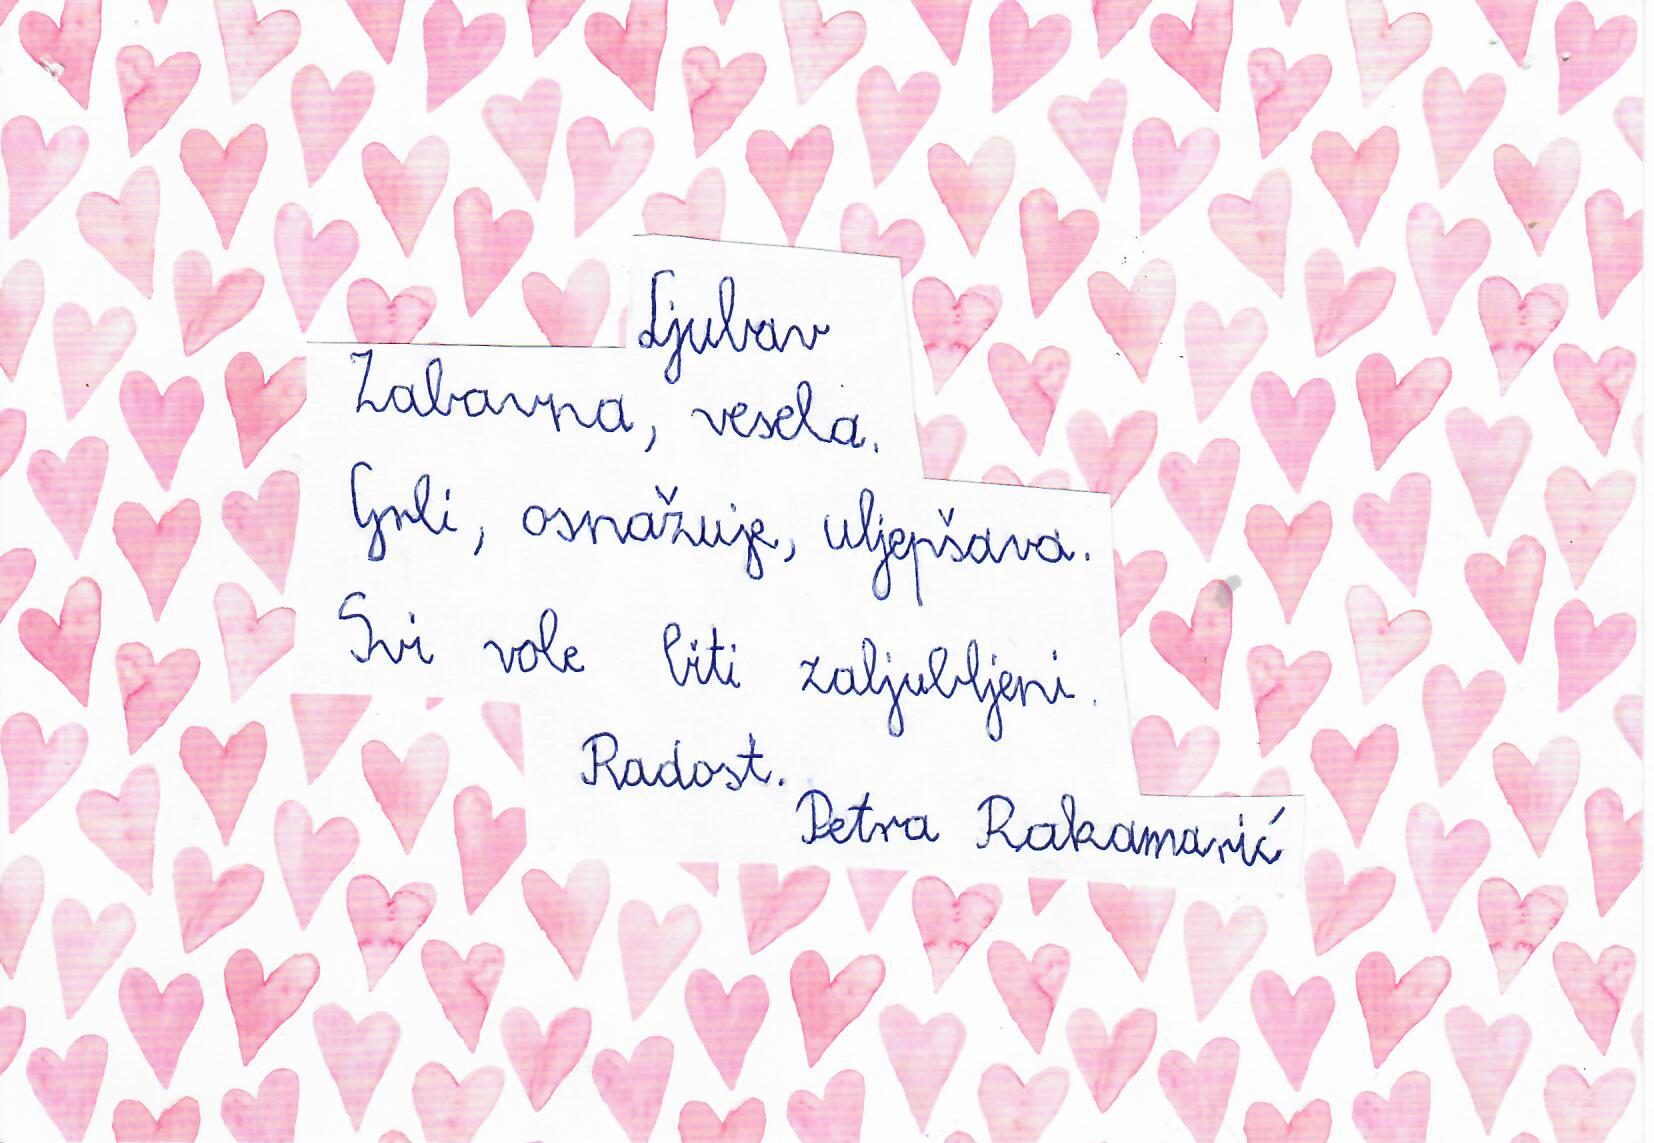 Ljubav
Zabavna, vesela.
Grli, osnažuje, uljepšava.
Svi vole biti zaljubljeni.
Radost.
Petra Rakamarić